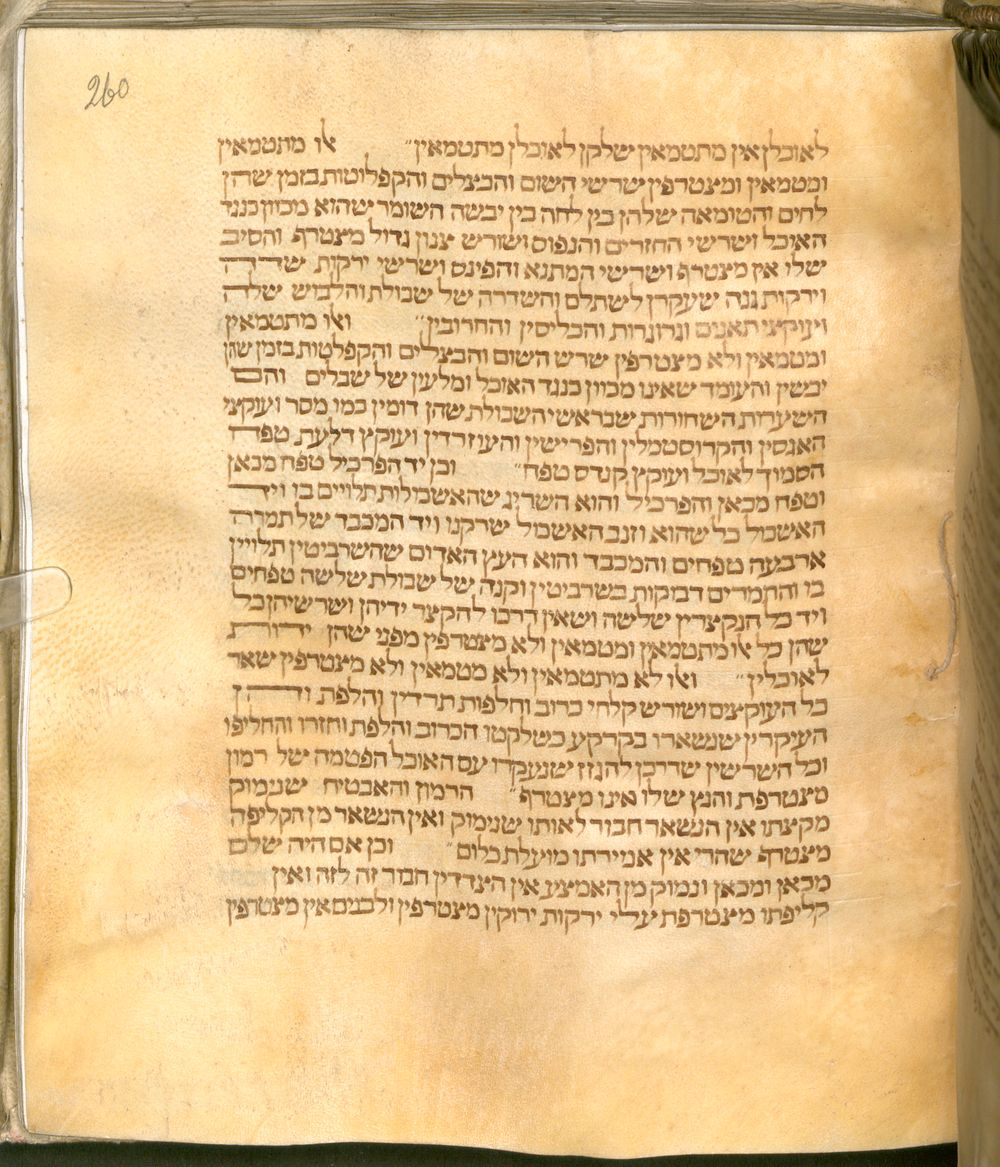 260
לאוכלין אין מתטמאין ישלקן לאוכלין מתטמאין״ אלו מתטמאין
ומטמאין ומצטרפין שרשי השום והבצלים והקפלוטות בזמן שהן
לחים והטומאה שלהן בין לחה בין יבשה השומר שהוא מכוון כנגד
האוכל ושרשי החזרים והנפוס ושורש צנון גדול מצטרף והסיב
שלו אין מצטרף ושרשי המתנא והפינס ושרשי ירקות שדה
וירקות גנה שעקרן לשתלם והשדרה של שבולת והלבוש שלה
ועוקצי תאנים וגרוגרות והכליסין והחרובין״ ואלו מתטמאין
ומטמאין ולא מצטרפין שרש השום והבצלים והקפלטות בזמן שהן
יבשין והעומד שאינו מכוון כנגד האוכל ומלעין של שבלים והם
השערות השחורות שבראשי השבולת שהן דומין כמו מסר ועוקצי
האגסין והקרוסטמלין והפרישין והעוזרדין ועוקץ דלעת טפח
הסמוך לאוכל ועוקץ קנדס טפח״ וכן יד הפרכיל טפח מכאן
וטפח מכאן והפרכיל והוא השריג שהאשכולות תלויים בו ויד
האשכול כל שהוא וזנב האשכול שרקנו ויד המכבד של תמרה
ארבעה טפחים והמכבד והוא העץ האדום שהשרביטין תלויין
בו והתמרים דבוקות בשרביטין וקנה של שבולת שלשה טפחים
ויד כל הנקצרין שלישה ושאין דרכו להקצר ידיהן ושרשיהן כל
שהן כל אלו מתטמאין ומטמאין ולא מצטרפין מפני שהן ידות
לאוכלין״ ואלו לא מתטמאין ולא מטמאין ולא מצטרפין שאר
כל העוקצים ושורש קלחי כרוב וחלפות תרדין והלפת והן
העיקרין שנשארו בקרקע כשלקטו הכרוב והלפת וחזרו והחליפו
וכל השרשין שדרכן להגזז שנעקרו עם האוכל הפטמה של רמון
מצטרפת והנץ שלו אינו מצטרף״ הרמון והאבטיח שנימוק
מקצתו אין הנשאר חבור לאותו שנימוק ואין הנשאר מן הקליפה
מצטרף שהרי אין אמירתו מועלת כלום״ וכן אם היה שלם
מכאן ומכאן ונמוק מן האמצע אין הצדדין חבור זה לזה ואין
קליפתו מצטרפת עלי ירקות ירוקין מצטרפין ולבנים אין מצטרפין